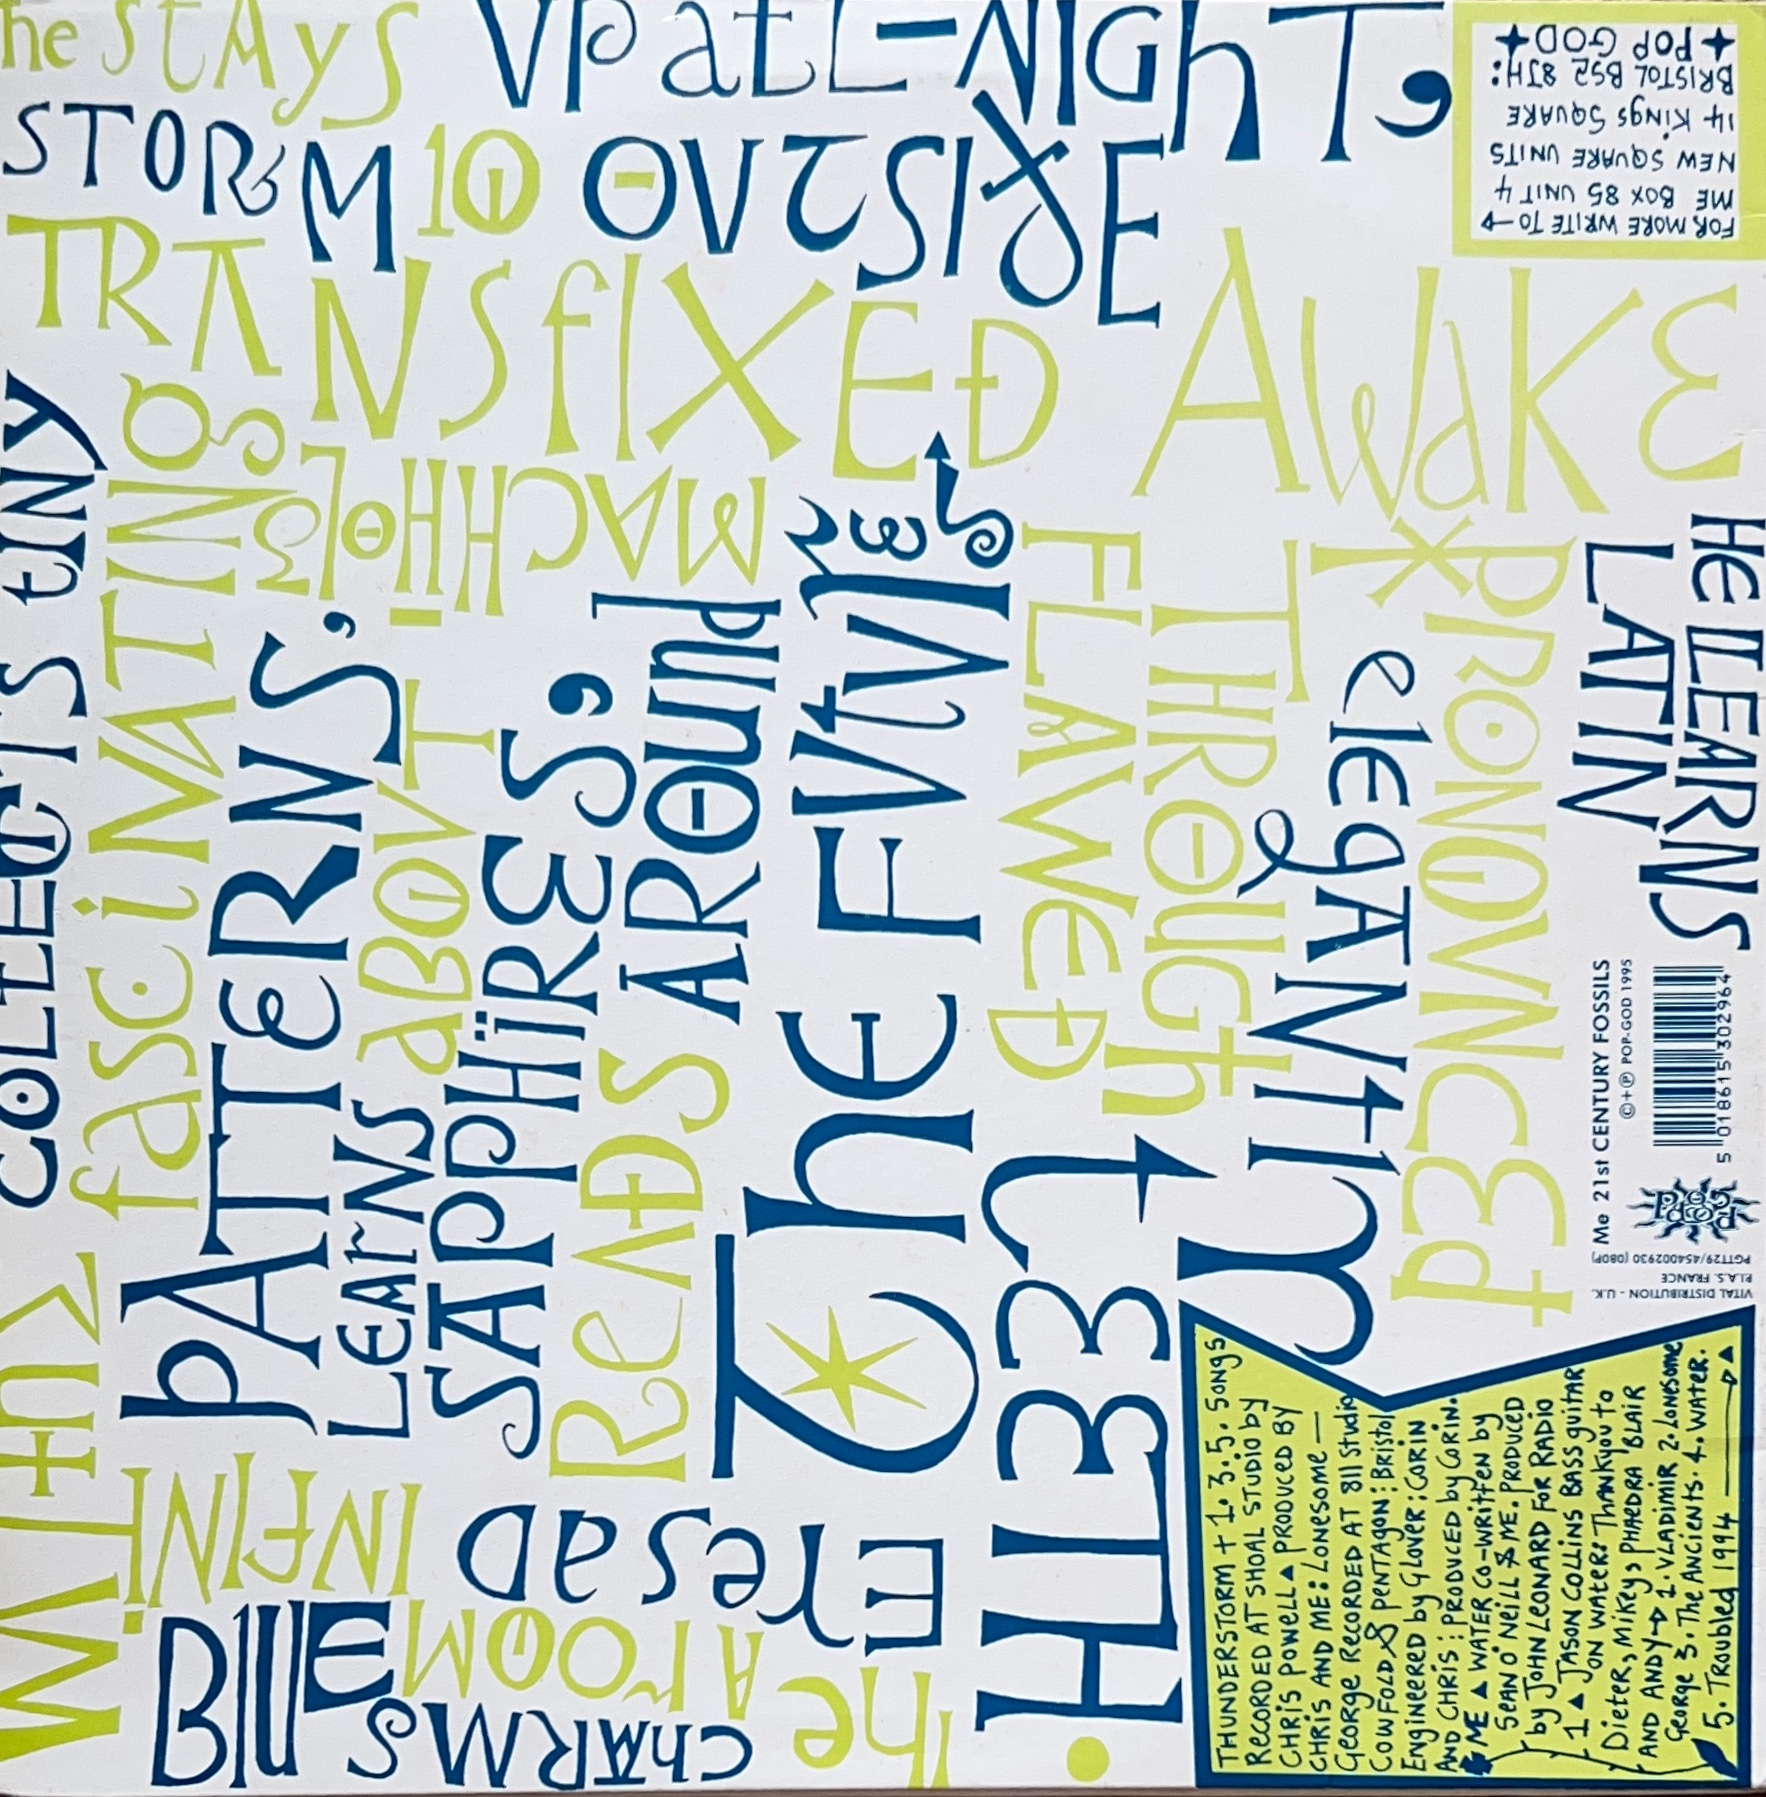 he stays up all-night,
STORM 10 OUTSIDE
TRANSFIXED AWAKE
FOR MORE WRITE TO
ME BOX 85 UNIT 4
NEW SQUARE UNITS
14 KINGS SQUARE
BRISTOL BS2 8JH:
POP GOD
He LEARNS
LATIN
PRONOUNCED
elegantly
THROUGH
FLAWED
The Future
READS AROUND
SAPPHIRES,
LEARNS ABOUT
PATTERNS,
fascinating
COLLECTS tiny
he
CHARMS
A ROOM
With
INFINI
BLUE
Eyes
Me 21st CENTURY FOSSILS
©+℗ POP-GOD 1995
5 018615 302964
POP GOD
PGTT29/454002930 (080P)
P.I.A.S. FRANCE
VITAL DISTRIBUTION - U.K.
THUNDERSTORM + 1. 3. 5. SONGS
RECORDED AT SHOAL STUDIO by
CHRIS POWELL ▲ PRODUCED BY
CHRIS AND ME: LONESOME —
GEORGE RECORDED AT 811 Studio
COWFOLD & PENTAGON: Bristol
ENGINEERED by GLOVER: CORIN
AND CHRIS: PRODUCED by CORIN.
& ME ▲ WATER CO-WRITTEN by
SEAN O'NEILL & ME. PRODUCED
by JOHN LEONARD FOR RADIO
1 ▲ JASON COLLINS BASS guitar
ON WATER: Thankyou to
DIETER, MIKEY, PHAEDRA BLAIR
AND ANDY → 1. VLADIMIR 2. LONESOME
GEORGE 3. The ANCIENTS. 4. WATER.
5. TROUBLED 1994